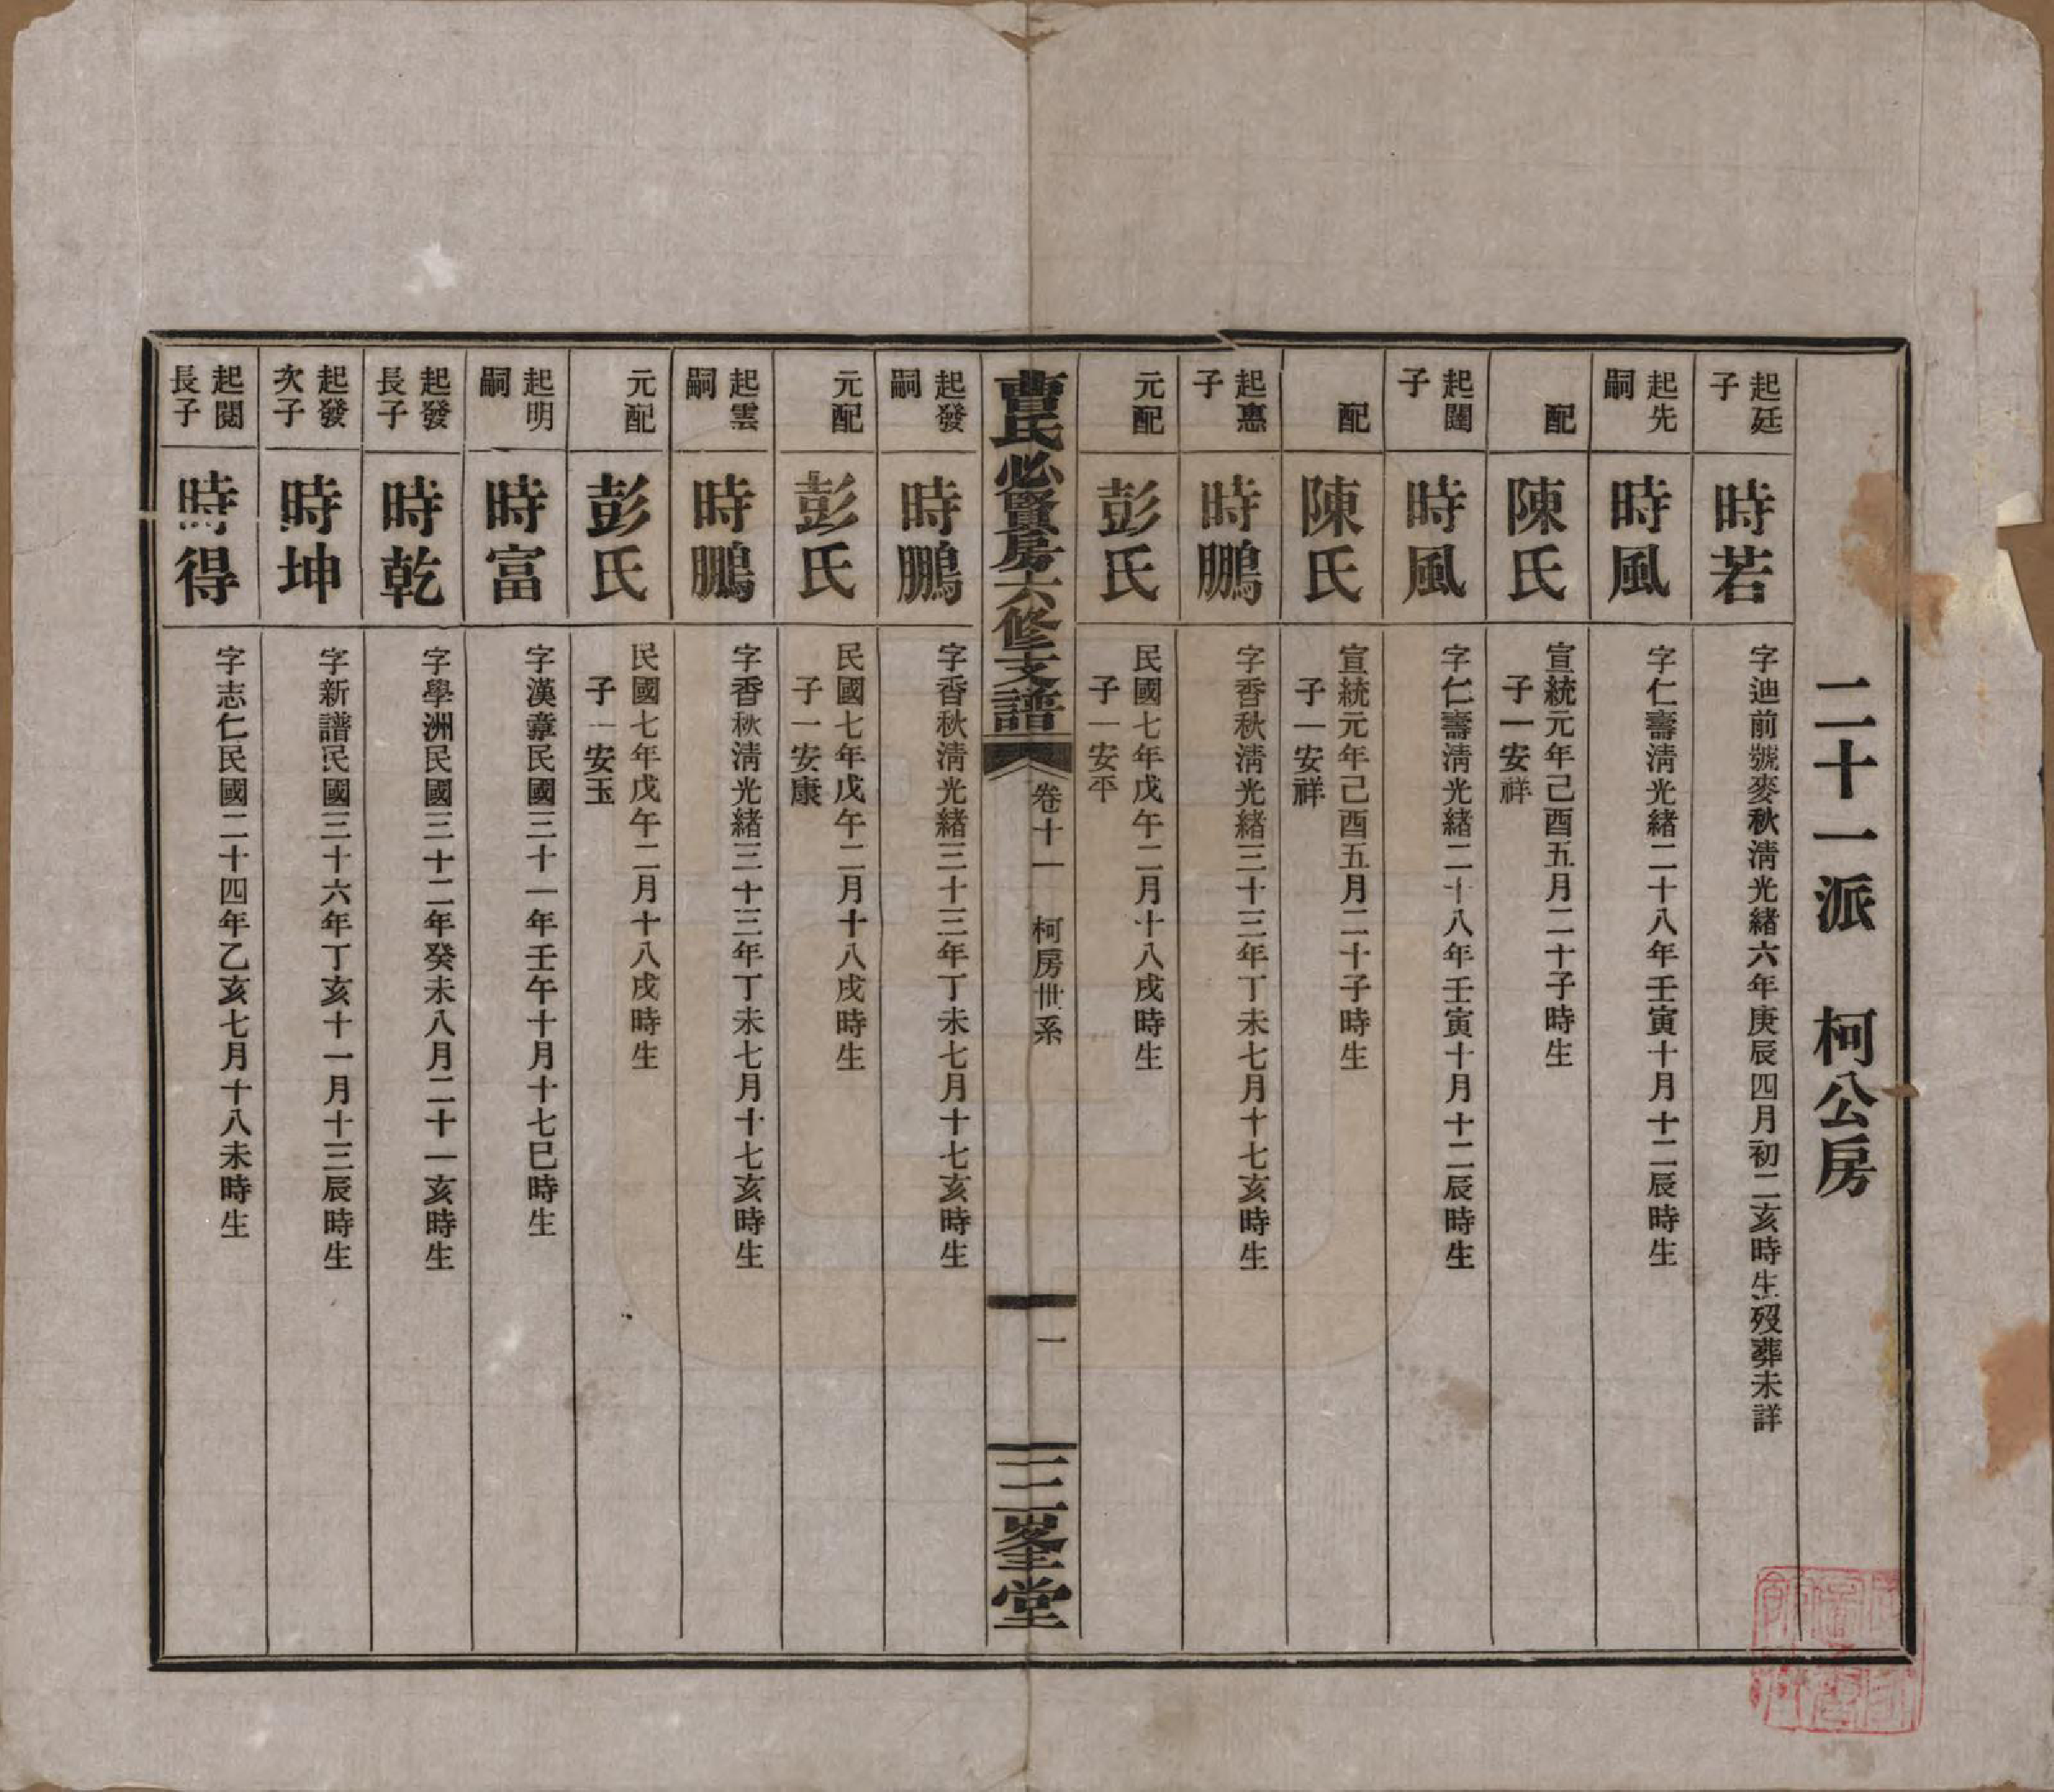 二十一派　柯公房
起廷子
時若
字迪前號麥秋清光緒六年庚辰四月初二亥時生歿葬未詳
起先嗣
時風
字仁壽清光緒二十八年壬寅十月十二辰時生
配
陳氏
宣統元年己酉五月二十子時生
子一安祥
起闓子
時風
字仁壽清光緒二十八年壬寅十月十二辰時生
配
陳氏
宣統元年己酉五月二十子時生
子一安祥
起惠子
時鵬
字香秋清光緒三十三年丁未七月十七亥時生
元配
彭氏
民國七年戊午二月十八戌時生
子一安平
曹氏必賢房六修支譜
卷十一　柯房世系
一
三畏堂
起發嗣
時鵬
字香秋清光緒三十三年丁未七月十七亥時生
元配
彭氏
民國七年戊午二月十八戌時生
子一安康
起雲嗣
時鵬
字香秋清光緒三十三年丁未七月十七亥時生
元配
彭氏
民國七年戊午二月十八戌時生
子一安玉
起明嗣
時富
字漢章民國三十一年壬午十月十七巳時生
起發長子
時乾
字學洲民國三十二年癸未八月二十一亥時生
起發次子
時坤
字新譜民國三十六年丁亥十一月十三辰時生
起閱長子
時得
字志仁民國二十四年乙亥七月十八未時生